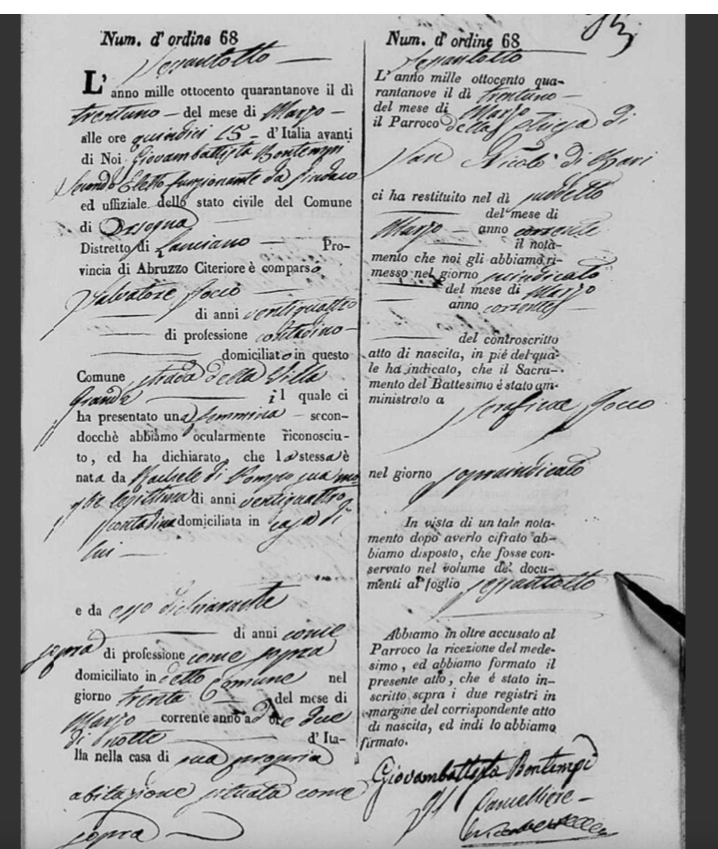 Num. d' ordine 68
Sessantotto
L'anno mille ottocento quarantanove il dì
trentuno del mese di Marzo
alle ore quindici 15 d' Italia avanti
di Noi Giovambattista Bontempi
Secondo Eletto funzionante da Sindaco
ed uffiziale dello stato civile del Comune
di Orsogna
Distretto di Lanciano Pro-
vincia di Abruzzo Citeriore è comparso
Salvatore Jocco
di anni ventiquattro
di professione contadino
domiciliato in questo
Comune strada della Villa
Grande il quale ci
ha presentato una femmina secon-
docchè abbiamo ocularmente riconosciu-
to, ed ha dichiarato, che la stessa è
nata da Rachele di Pompo sua mo
glie legittima di anni ventiquattro
contadina domiciliata in casa di
lui
e da esso dichiarante
di anni come
sopra di professione come sopra
domiciliato in detto Comune nel
giorno trenta del mese di
Marzo corrente anno ad ore due
di notte d' Ita-
lia nella casa di sua propria
abitazione situata come
sopra
Num. d' ordine 68
Sessantotto
L' anno mille ottocento qua-
rantanove il dì trentuno
del mese di Marzo
il Parroco della Chiesa di
San Nicolò di Bari
ci ha restituito nel dì suddetto
del mese di
Marzo anno corrente
il nota-
mento che noi gli abbiamo ri-
messo nel giorno suindicato
del mese di Marzo
anno corrente
del controscritto
atto di nascita, in piè del qua-
le ha indicato, che il Sacra-
mento del Battesimo é stato am-
ministrato a
Serafina Jocco
nel giorno sopraindicato
In vista di un tale nota-
mento dopo averlo cifrato ab-
biamo disposto, che fosse con-
servato nel volume de' docu-
menti al foglio sessantotto
Abbiamo in oltre accusato al
Parroco la ricezione del mede-
simo, ed abbiamo formato il
presente atto, che é stato in-
scritto sopra i due registri in
margine del corrispondente atto
di nascita, ed indi lo abbiamo
firmato.
Giovambattista Bontempi
Il Cancelliere